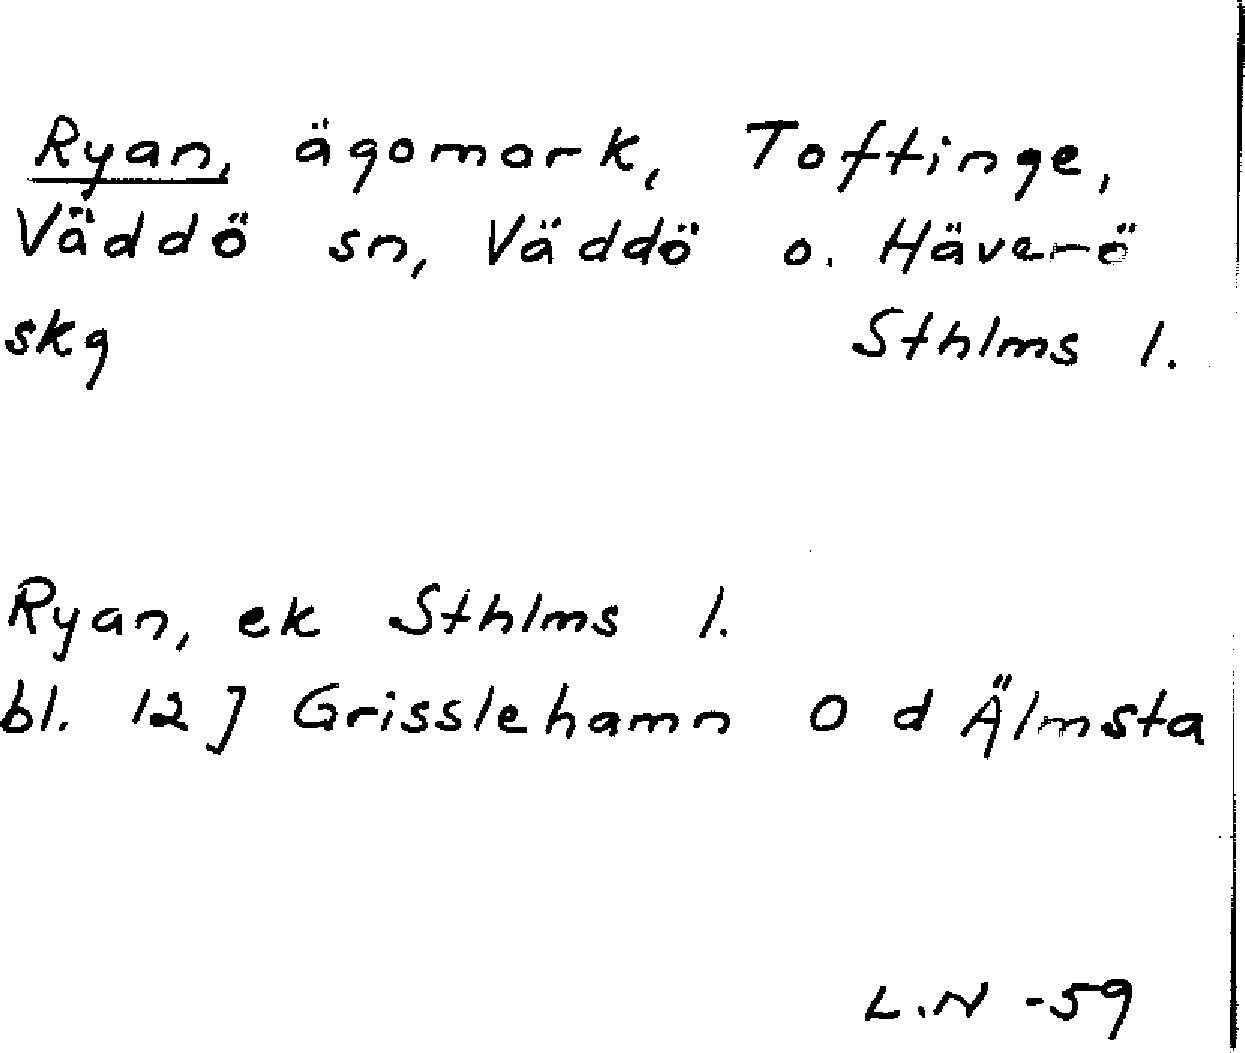 Ryan, ägomark, Toftinge,
Väddö sn, Väddö o. Häverö
skg Sthlms l.
Ryan, ek Sthlms l.
bl. 12 J Grisslehamn O d Älmsta
L.N -59